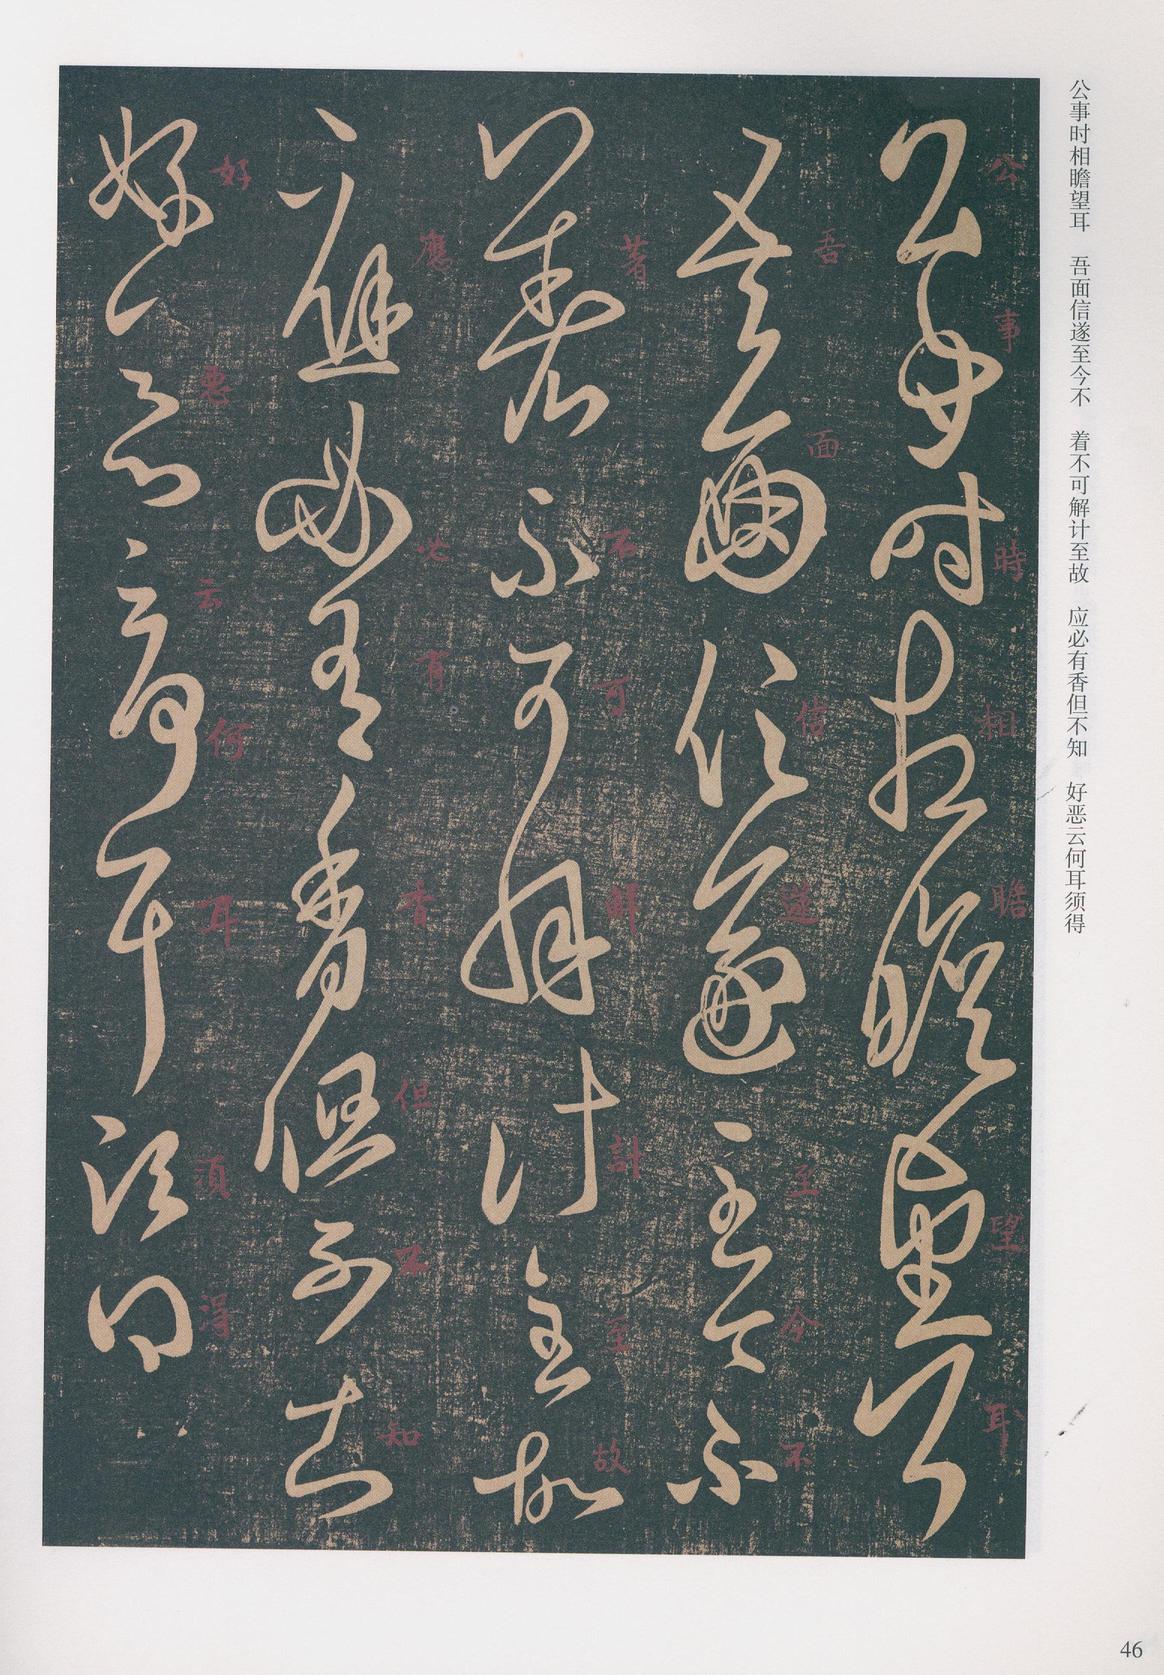 公事时相瞻望耳　吾面信遂至今不　着不可解计至故　应必有香但不知　好恶云何耳须得
公事時相瞻望耳
吾面信遂至今不
著不可解計至故
應必有香但不知
好惡云何耳須得
46